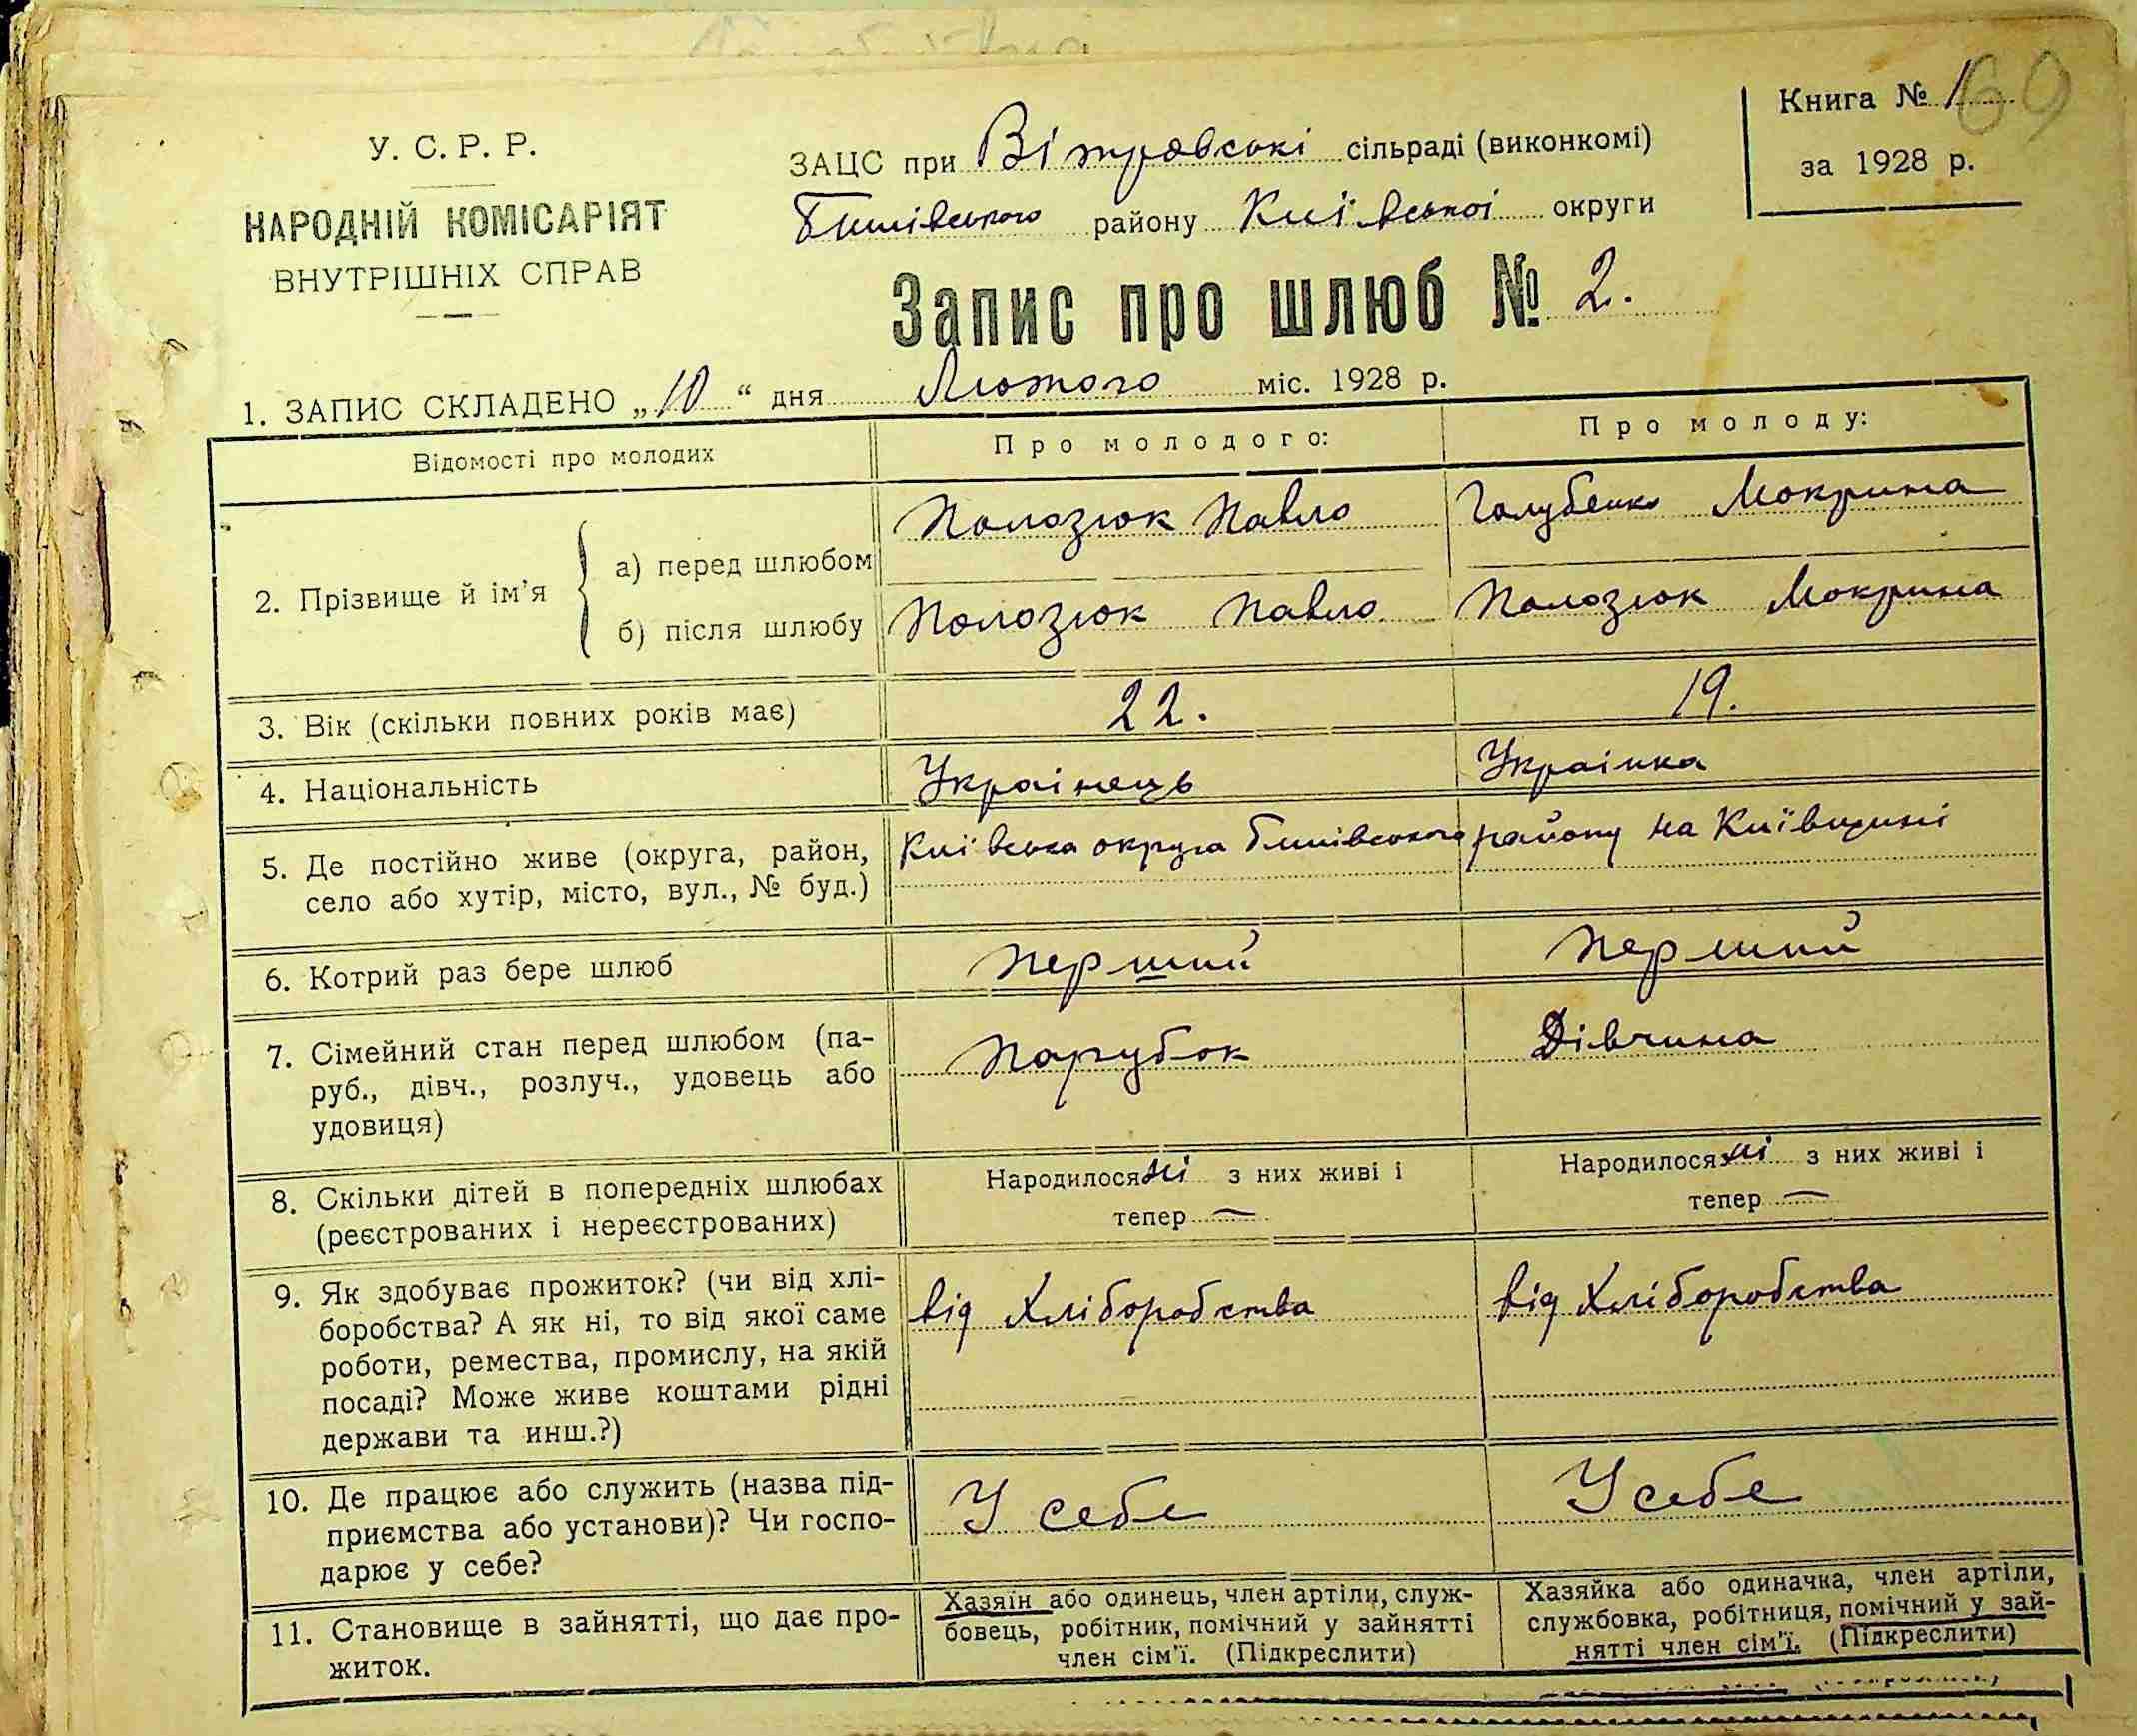 69
Книга № 1
за 1928 р.
У. С. Р. Р.
НАРОДНІЙ КОМІСАРІЯТ
ВНУТРІШНІХ СПРАВ
ЗАЦС при Вітрівські сільраді (виконкомі)
району Киівськоі округи
Запис про шлюб № 2.
1. ЗАПИС СКЛАДЕНО „10“ дня Лютого міс. 1928 р.
Відомості про молодих
Про молодого:
Про молоду:
2. Прізвище й ім'я
а) перед шлюбом
Полозюк Павло
Голубенко Мокрина
б) після шлюбу
Полозюк Павло
Полозюк Мокрина
3. Вік (скільки повних років має)
22.
19.
4. Національність
Украінець
Украінка
5. Де постійно живе (округа, район,
село або хутір, місто, вул., № буд.)
Киівська округа
району на Київщині
6. Котрий раз бере шлюб
перший
перший
7. Сімейний стан перед шлюбом (па-
руб., дівч., розлуч., удовець або
удовиця)
Парубок
Дівчина
8. Скільки дітей в попередніх шлюбах
(реєстрованих і нереєстрованих)
Народилося ні з них живі і
тепер —
Народилося ні з них живі і
тепер —
9. Як здобуває прожиток? (чи від хлі-
боробства? А як ні, то від якої саме
роботи, ремества, промислу, на якій
посаді? Може живе коштами рідні
держави та инш.?)
від Хліборобства
від Хліборобства
10. Де працює або служить (назва під-
приємства або установи)? Чи госпо-
дарює у себе?
У себе
У себе
11. Становище в зайнятті, що дає про-
житок.
Хазяїн або одинець, член артіли, служ-
бовець, робітник, помічний у зайнятті
член сім'ї. (Підкреслити)
Хазяйка або одиначка, член артіли,
службовка, робітниця, помічний у зай-
нятті член сім'ї. (Підкреслити)